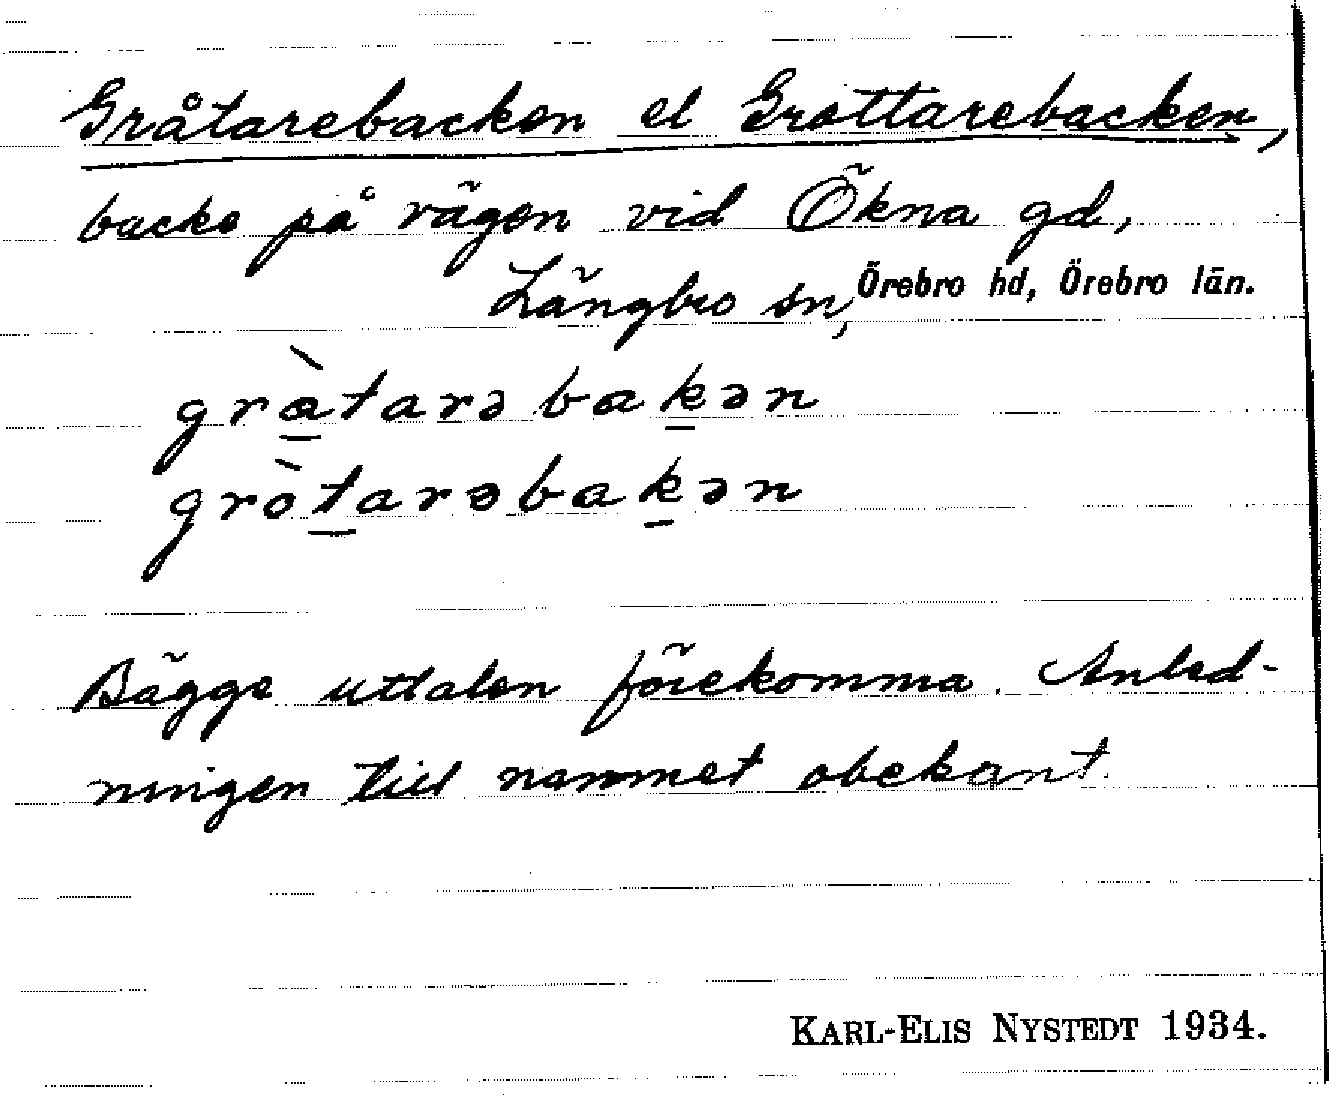 Gråtarebacken el Grottarebacken,
backe på vägen vid Ökna gd,
Längbro sn, Örebro hd, Örebro län.
grà̱tarəbaḵən
gròṯarəbaḵən
Bägge uttalen förekomma. Anled-
ningen till namnet obekant.
KARL-ELIS NYSTEDT 1934.